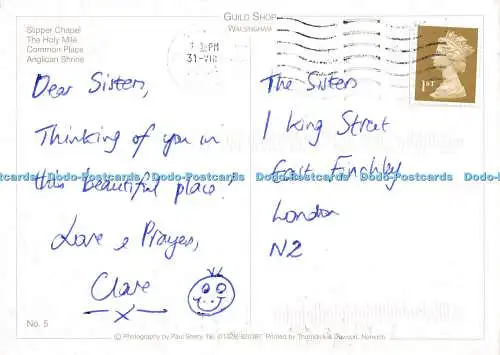 GUILD SHOP
WALSINGHAM
Slipper Chapel
The Holy Mile
Common Place
Anglican Shrine
PM
31-VIII
1ST
Dear Sisters,
Thinking of you in
this beautiful place!
Love & Prayers,
Clare
x
The Sisters
1 King Street
East Finchley
London
N2
Dodo-Postcards Dodo-Postcards Dodo-Postcards Dodo-Postcards Dodo-Postcards
No. 5
© Photography by Paul Printed by Thornton & Dawson, Norwich